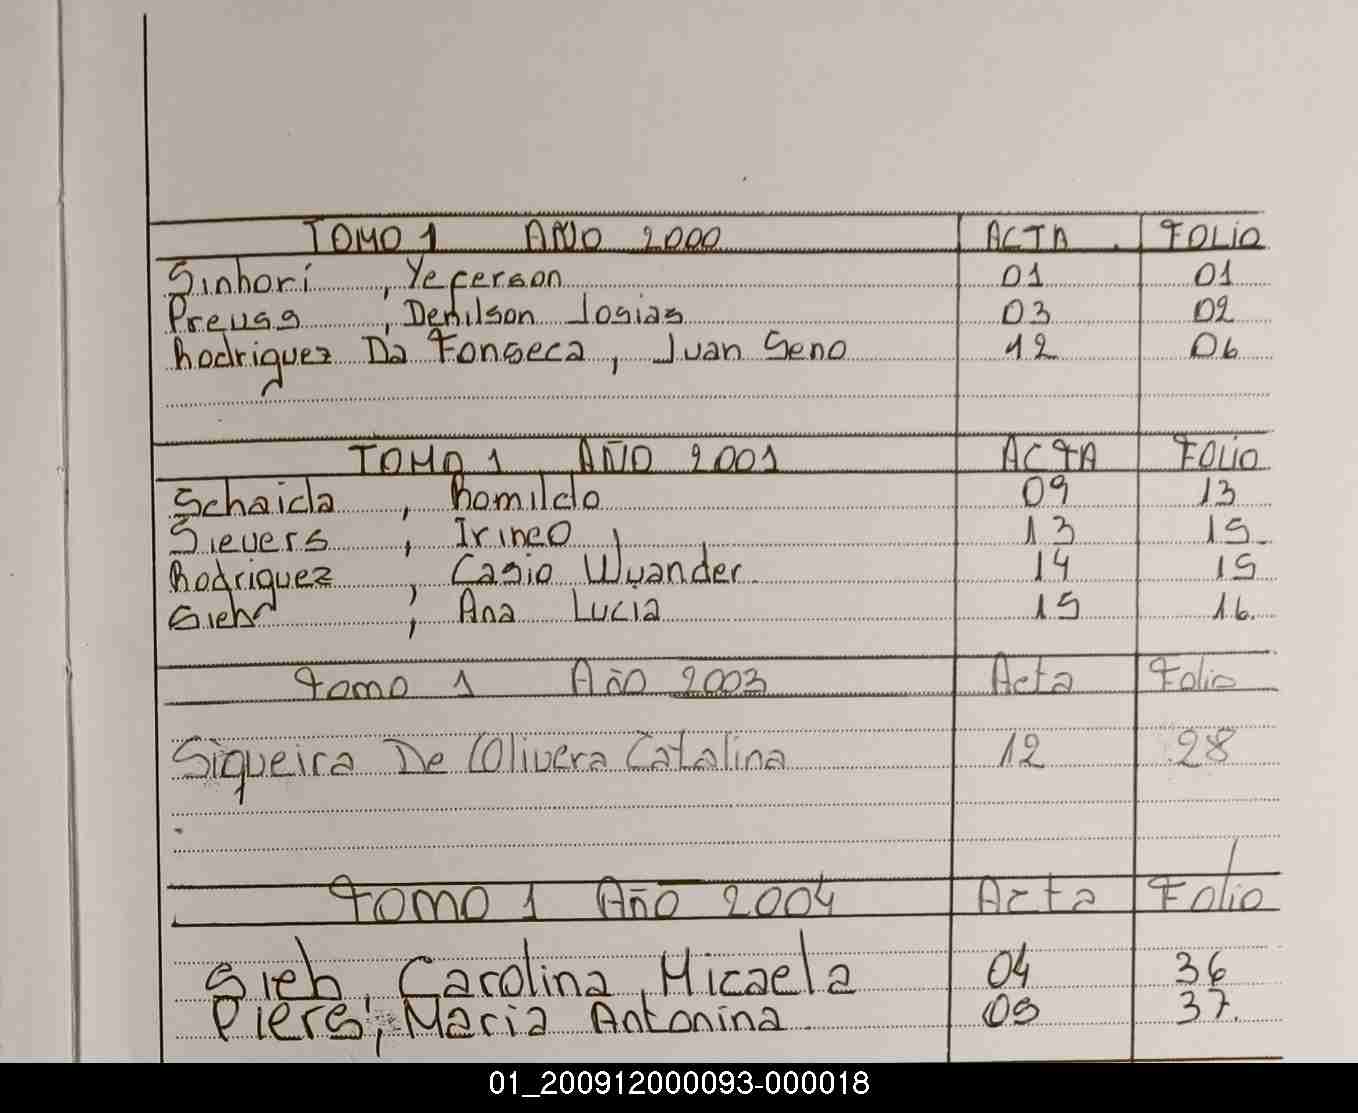 TOMO 1 AÑO 2000 ACTA FOLIO
Sinhori , Yeferson 01 01
Preuss , Denilson Josias 03 02
Rodriguez Da Fonseca, Juan Seno 12 06
TOMO 1 AÑO 2001 ACTA FOLIO
Schaida , Romildo 09 13
Sievers , Irineo 13 15
Rodriguez , Casio Wyander 14 15
Sieh , Ana Lucia 15 16
Tomo 1 Año 2003 Acta Folio
Siqueira De Olivera Catalina 12 28
Tomo 1 Año 2004 Acta Folio
Sieh, Carolina Micaela 04 36
Piers, Maria Antonina 05 37
01_200912000093-000018